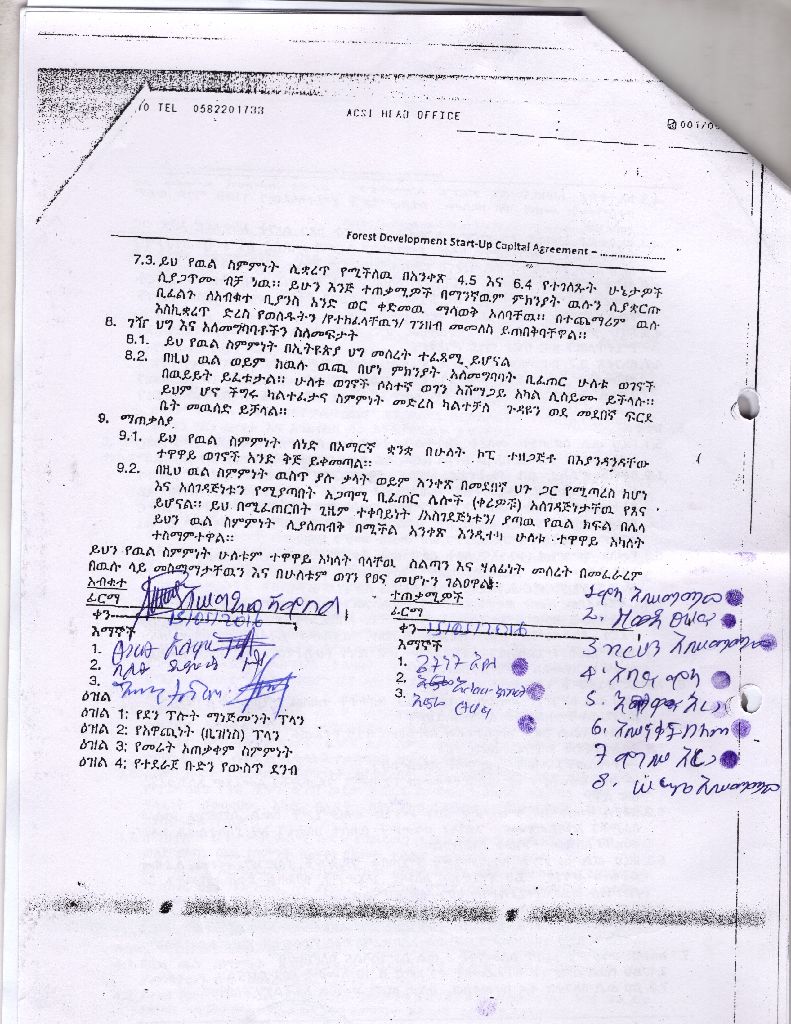 TEL 0582201733 ACSI HEAD OFFICE 001/0
Forest Development Start-Up Capital Agreement – ....................
7.3. ይህ የዉል ስምምነት ሊቋረጥ የሚችለዉ በአንቀጽ 4.5 እና 6.4 የተገለጹት ሁኔታዎች
ሲያጋጥሙ ብቻ ነዉ፡፡ ይሁን እንጅ ተጠቃሚዎች በማንኛዉም ምክንያት ዉሉን ሲያቋርጡ
ቢፈልጉ ለአብቁተ ቢያንስ አንድ ወር ቀድመዉ ማሳወቅ አለባቸዉ፡፡ በተጨማሪም ዉሉ
እስኪቋረጥ ድረስ የወሰዱትን /የተከፈላቸዉን/ ገንዘብ መመለስ ይጠበቅባቸዋል፡፡
8. ገዥ ህግ እና አለመግባባቶችን ስለመፍታት
8.1. ይህ የዉል ስምምነት በኢትዮጵያ ህግ መሰረት ተፈጻሚ ይሆናል
8.2. በዚህ ዉል ወይም ከዉሉ ዉጪ በሆነ ምክንያት አለመግባባት ቢፈጠር ሁለቱ ወገኖች
በዉይይት ይፈቱታል፡፡ ሁለቱ ወገኖች ሶስተኛ ወገን አሸማጋይ አካል ሊሰይሙ ይችላሉ፡፡
ይህም ሆኖ ችግሩ ካልተፈታና ስምምነት መድረስ ካልተቻለ ጉዳዩን ወደ መደበኛ ፍርድ
ቤት መዉሰድ ይቻላል፡፡
9. ማጠቃለያ
9.1. ይህ የዉል ስምምነት ሰነድ በአማርኛ ቋንቋ በሁለት ኮፒ ተዘጋጅቶ በእያንዳንዳቸው
ተዋዋይ ወገኖች አንድ ቅጅ ይቀመጣል፡፡
9.2. በዚህ ዉል ስምምነት ዉስጥ ያሉ ቃላት ወይም አንቀጽ በመደበኛ ህጉ ጋር የሚጣረስ ከሆነ
እና አስገዳጅነቱን የሚያጣበት አጋጣሚ ቢፈጠር ሌሎች (ቀሪዎቹ) አስገዳጅነታቸዉ የጸና
ይሆናል፡፡ ይህ በሚፈጠርበት ጊዜም ተቀባይነት /አስገደጅነቱን/ ያጣዉ የዉል ክፍል በሌላ
ይህን ዉል ስምምነት ሊያስጠብቅ በሚችል አንቀጽ እንዲተካ ሁለቱ ተዋዋይ አካላት
ተስማምተዋል፡፡
ይህን የዉል ስምምነት ሁለቱም ተዋዋይ አካላት ባላቸዉ ስልጣን እና ሃላፊነት መሰረት በመፈራረም
በዉሉ ላይ መስማማታቸዉን እና በሁለቱም ወገን የፀና መሆኑን ገልፀዋል፡
አብቁተ ተጠቃሚዎች
ፊርማ ፊርማ
ቀን 15/05/2016 ቀን 15/05/2016
እማኞች እማኞች
1. 1.
2. 2.
3. 3.
ዕዝል
ዕዝል 1: የደን ፕሎት ማኔጅመንት ፕላን
ዕዝል 2: የአዋጪነት (ቢዝነስ) ፕላን
ዕዝል 3: የመሬት አጠቃቀም ስምምነት
ዕዝል 4: የተደራጀ ቡድን የውስጥ ደንብ